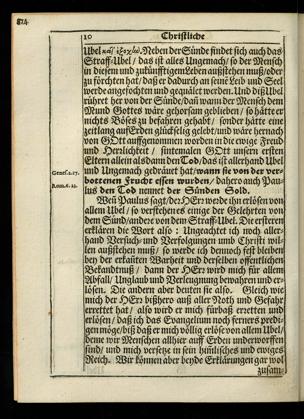 824
10 Christliche
Ubel κατ' ἐξοχὴν. Neben der Sünde findet sich auch das
Straff-Ubel / das ist alles Ungemach / so der Mensch
in diesem und zukünfftigem Leben außstehen muß / oder
zu förchten hat / daß er dadurch an seine Leib und Seel
werde angefochten und gequälet werden. Und diß Ubel
rühret her von der Sünde / dañ wann der Mensch dem
Mund Gottes wäre gehorsam geblieben / so hätte er
nichts Böses zu befahren gehabt / sonder hätte eine
zeitlang auff Erden glückselig gelebt / und wäre hernach
von GOtt auffgenommen worden in die ewige Freud
und Herrlichkeit / sintemalen GOtt unsern ersten
Eltern allein als dann den Tod / das ist allerhand Ubel
und Ungemach gedräuet hat / wann sie von der ver-
Genes. 2. 17.
bottenen Frucht essen wurden / dahero auch Pau-
Rom. 6. 23.
lus den Tod nennet der Sünden Sold.
Weñ Paulus sagt / der HErr werde ihn erlösen von
allem Ubel / so verstehens einige der Gelehrten von
dem Sünd / andere von dem Straff-Ubel. Die ersteren
erklären die Wort also : Ungeachtet ich noch aller-
hand Versuch- und Verfolgungen umb Christi wil-
len außstehen muß / so werde ich dennoch fest bleiben
bey der erkañten Warheit und derselben offentlichen
Bekandtnuß / dann der HErr wird mich für allem
Abfall / Unglaub und Verleugnung bewahren und er-
lösen. Die andern aber deuten sie also. Gleich wie
mich der HErr bißhero auß aller Noth und Gefahr
errettet hat / also wird er mich fürbaß erretten und
erlösen / daß ich das Evangelium noch ferners predi-
gen möge / biß daß er mich völlig erlöse von allem Ubel /
deme wir Menschen allhier auff Erden underworffen
sind / und mich versetze in sein himlisches und ewiges
Reich. Wir können aber beyde Erklärungen gar wol
zusam-